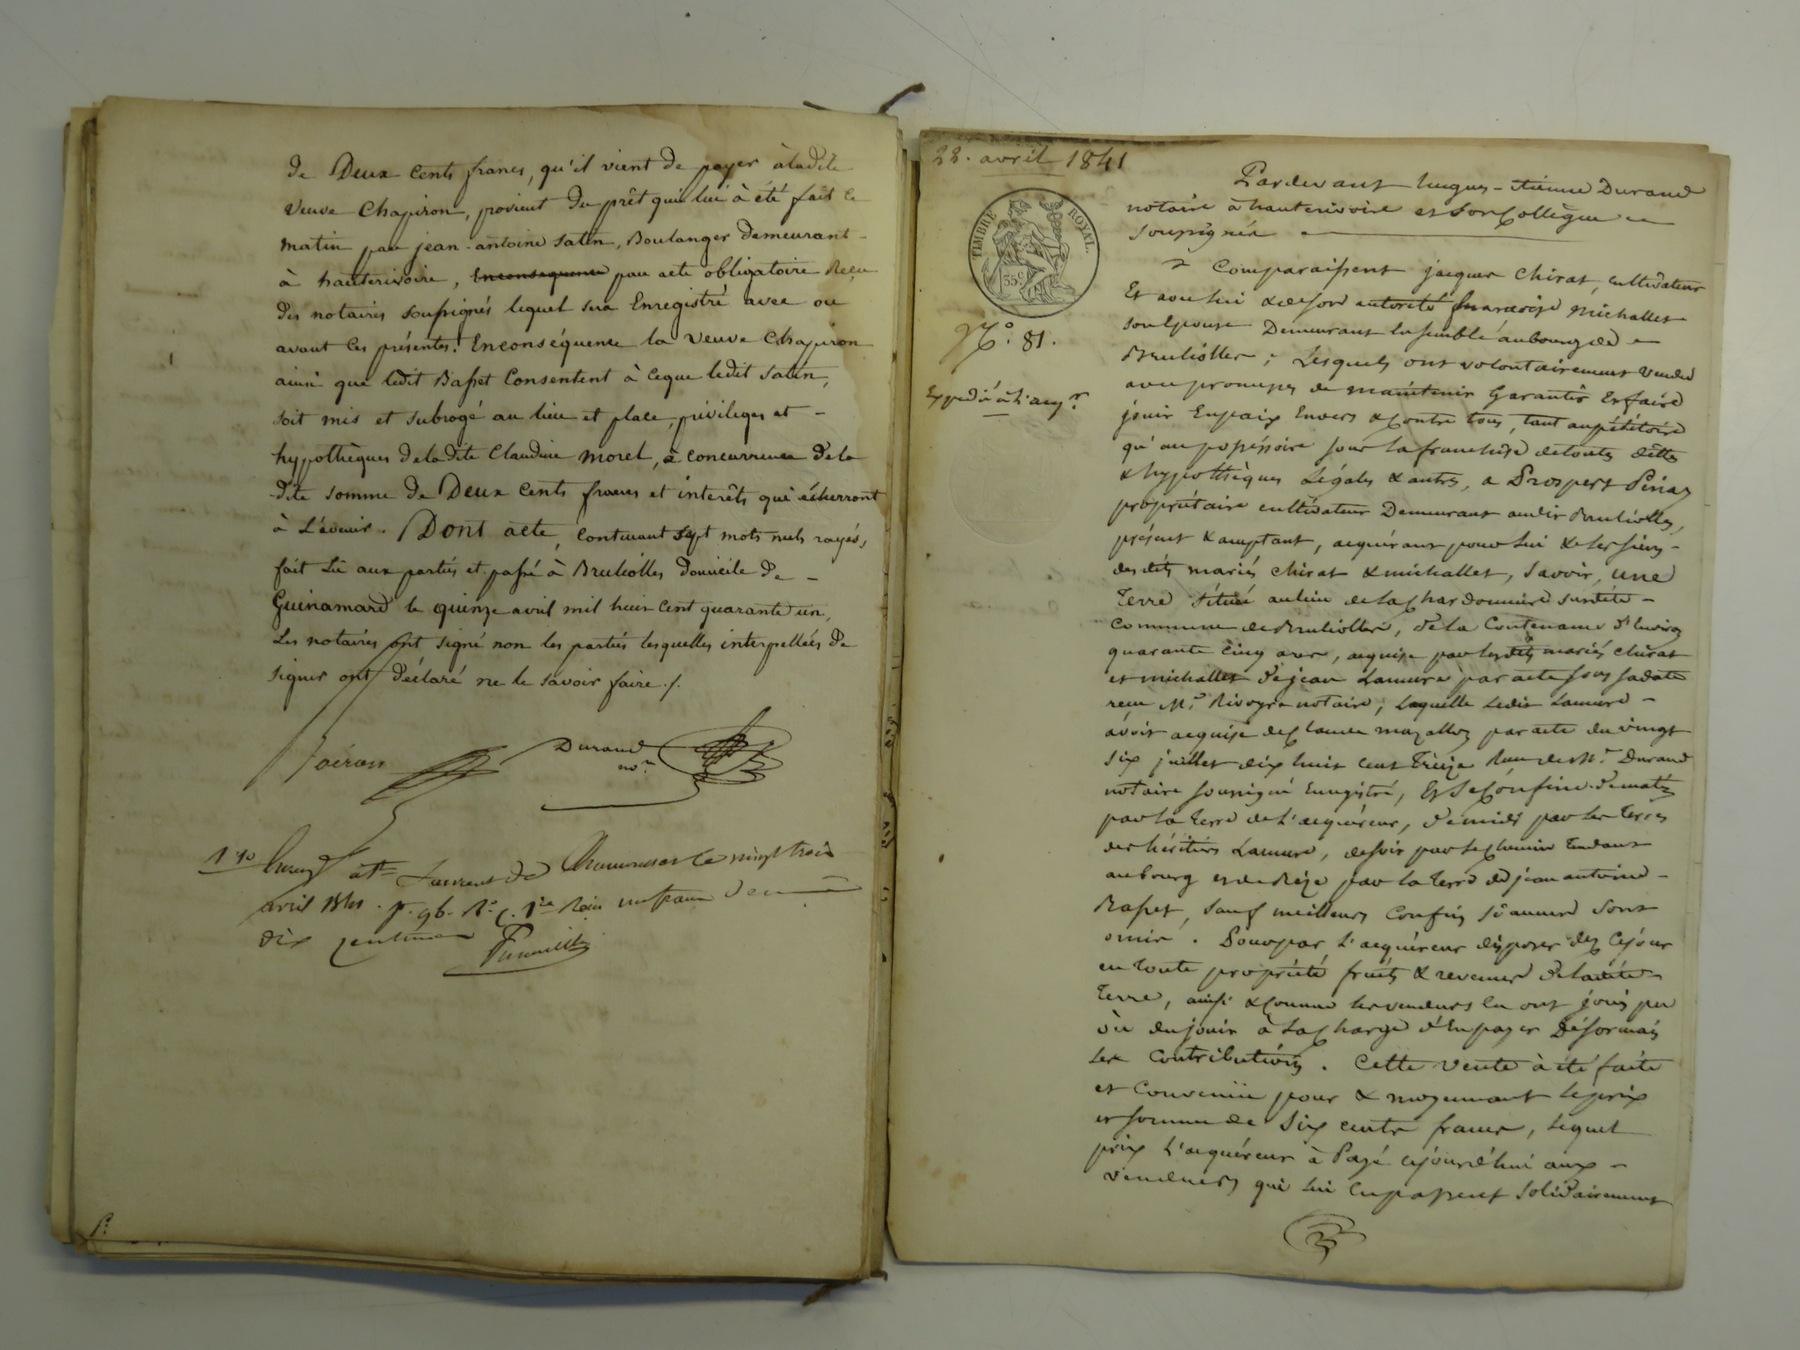 de Deux cents francs, qu'il vient de payer àladite
veuve Chapiron, provient du prêt qui lui à été fait ce
matin par jean-antoine Satin, Boulanger demeurant -
à hauterivoire, Enconsequence par acte obligatoire Reçu
des notaires soussignés lequel sera Enregistré avec ou
avant ces présentes. Enconséquence la veuve Chapiron
ainsi que ledit Basset Consentent à ceque ledit Satin,
soit mis et subrogé au lieu et place, privileges et -
hypothèques deladite Claudine morel, à concurrence dela
dite somme de Deux cents francs et interêts qui écherront
à L'avenir. Dont acte, contenant sept mots nuls rayés,
fait Lû aux parties et passé à Brulliolles domicile de -
Guinamard le quinze avril mil huit cent quarante un,
Les notaires ont signé non les parties lesquelles interpellées de
signer ont déclaré ne le savoir faire./.
Durand
no.re
à St Laurent de Chamousset le vingt trois
avril 1841. f. 96. Ro. c. 1re Reçu un franc
dix centimes
22. avril 1841
TIMBRE ROYAL.
35c
No. 81.
Expédié à l'acqr.
Pardevant hugues-Etienne Durand
notaire à hauterivoire et son Collègue
soussignés
Comparaissent jacques Chirat, cultivateur
Et avec lui & deson autorité françoise michallet
son Epouse Demeurant Ensemble aubourg de
Brulliolles; Lesquels ont volontairement vendu
avec promesses de maintenir Garantir Et faire
jouir Enpaix Envers & Contre tous, tant aupétitoire
qu'au possessoire sous la franchise detoutes dettes
& hypothèques Légales & autres, a Prosper
propriétaire cultivateur Demeurant audit Brulliolles,
présent & acceptant, acquérant pour lui & les siens -
desdits mariés chirat & michallet, Savoir, une
Terre située aulieu de la Chardonnière susdite -
commune de Brulliolles, dela Contenance d'Environ
quarante Cinq ares, acquise par lesdits mariés chirat
et michallet de jean Lamure par acte sous sadate
reçu Me. Rivoyre notaire, Laquelle Ledit Lamure -
avoit acquise de par acte du vingt
six juillet dix huit cent Treize Reçu de Me. Durand
notaire soussigné Enregistré, Et Se Confine de matin
par la Terre de L'acquéreur, de midi par les Terres
des héritiers Lamure, desoir par le Chemin Tendant
aubourg et de Bize par la Terre de jean antoine -
Basset, sauf meilleurs Confins si aucuns sont
omis. Pour par L'acquéreur disposer dez Cejour
en toute propriété fruits & revenus deladite -
Terre, ainsi & Comme les vendeurs En ont joui pu
ou du jouir à la Charge d'En payer Désormais
les contributions. Cette vente à été faite
et Convenüe pour & moyennant le prix
et somme de Six cents francs, lequel
prix L'acquéreur à Payé cejourd'hui aux -
vendeurs qui lui En passent solidairement